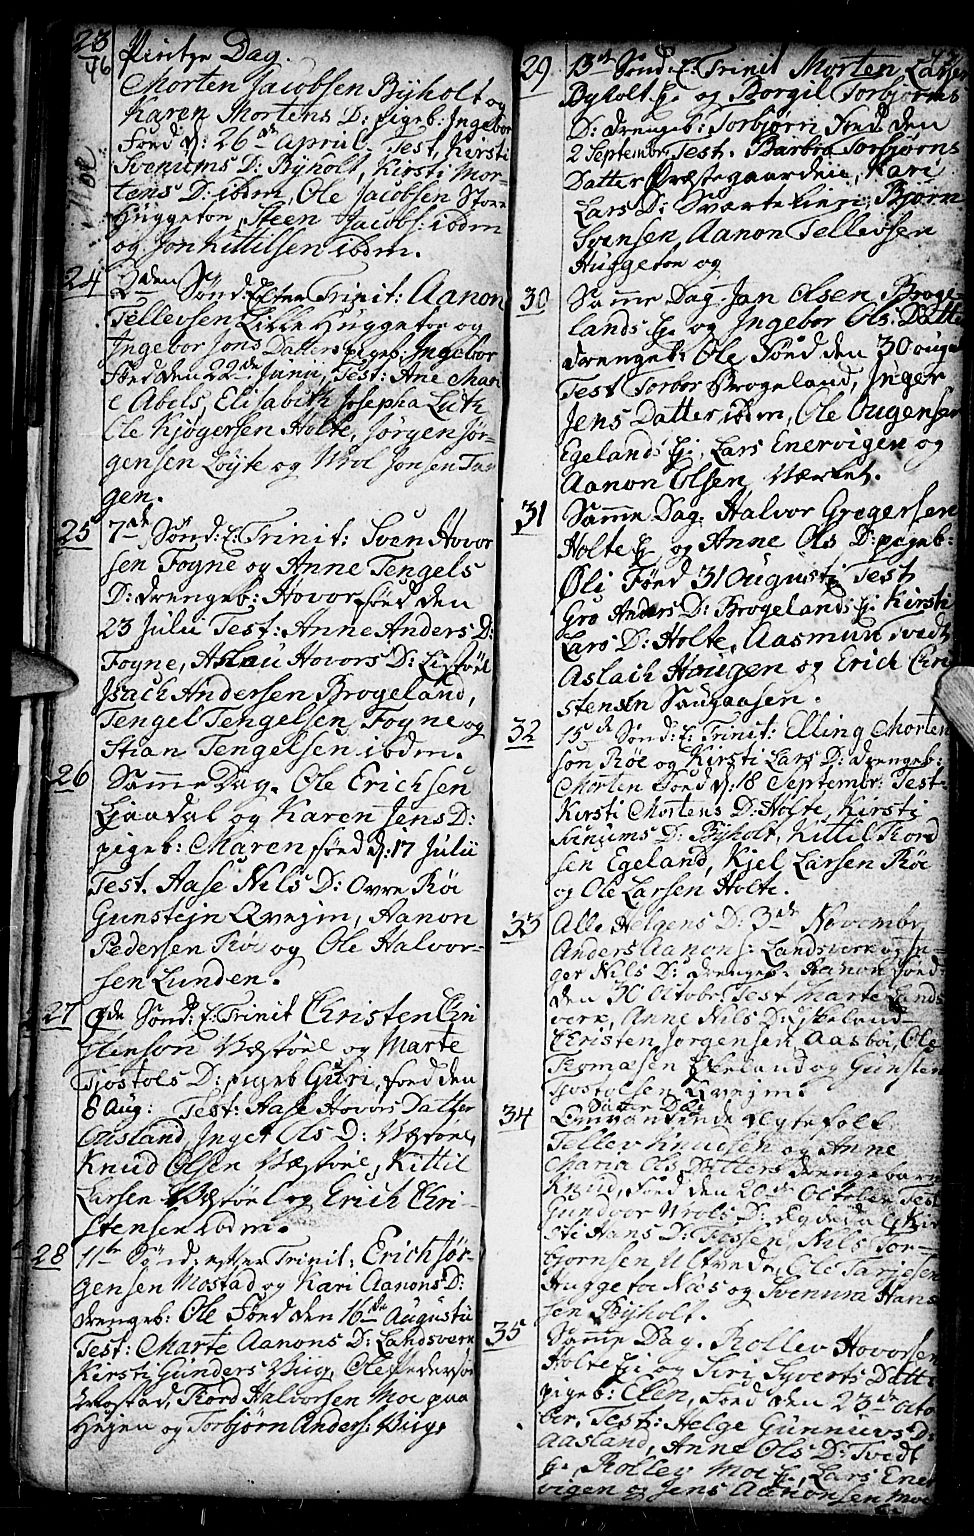 23
46
Pintze Dag.
Morten Jacobsen Byholt og
Karen Mortens D: pigeb: Ingebor
Fønd d: 26de April. Test. Kirsti
Svenums D: Byholt, Kirsti Mor-
tens D: ibdm, Ole Jacobsen Store
Huggetoe, Steen Jacobs: ibdm
og Jon Kittilsen ibdm.
24 Sønd: Efter Trinit: Aanon
Tellevsen Lille Huggetoe og
Ingebor Jons Datters pigeb: Ingebor
Fønd den 22de Junii, Test: Ane Mari
e Abels, Elisabeth Josepha Luth
Ole Kjøgersen Holte, Jørgen Jør-
gensen Løyte og Wrol Jonsen Tar
gen.
25 7de Sønd: E: Trinit: Sven Hovor
sen Fogne og Anne Tengels
D: drengeb: Hovor fønd den
23 Julii Test: Anne Anders D:
Fogne, Aslau Hovors D: Listøel
Isach Andersen Brogeland,
Tengel Tengelsen Fogne og
Stian Tengelsen ibdm.
26 Samme Dag. Ole Erichsen
Ljaadal og Karen Jens D:
pigeb: Maren fønd d: 17 Julii
Test. Aase Nils D: Ovre Røe
Gunstejn Qvejm, Aanon
Pedersen Røe og Ole Halvor-
sen Lunden.
27 9de Sønd: E: Trinit Christen Chri
stensøn Væstøel og Marte
Tjøstols D: pigeb Guri, fønd den
8 Aug: Test: Aase Hovors Datter
Ausland, Inget Ols D: Væstøel,
Knud Olsen Væstøel, Kittil
Larsen Væstøel og Erich Chri-
stensen ibdm.
28 11te Sønd: efter Trinit: Erich Jør-
gensen Mostad og Kari Aanons D:
drengeb: Ole Fønd den 16de Augustii
Test: Marte Aanons D: Landsverk
Kirsti Gunders Viig, Ole Pedersøn
Mostad, Tiord Halvorsen Moe paa
Hejen og Torbjørn Anders: Viig.
29 13de Sønd: E: Trinit Morten Larsen
Byholt Ej: og Borgil Torbjørns
D: drengeb: Torbjørn Fønd den
2 Septembr Test. Barbra Torbjørns
Datter Præstegaarden, Kari
Lars D: Sværteliin: Bjørn
Svensen, Aanon Tellevsen
Huggetoe og
30 Samme Dag Jan Olsen Broge-
lands Ej: og Ingebor Ols: Datte
drengeb: Ole Fønd den 30 aug
Test Torbor Brogeland, Inger
Jens Datter ibdm, Ole Ougensen
Egelands Ej:, Lars Enervigen og
Aanon Olsen Værket.
31 Samme Dag. Halvor Gregersen
Holte Ej: og Anne Ols D: pigeb:
Øli Fønd 31 Augusti Test
Gro Anders D: Brogelands Ej: Kirsti
Lars D: Holte, Aasmun Tvedt
Aslach Hougen og Erich Chri
stensen Saugaasen.
32 15de Sønd: E: Trinit: Elling Morten
søn Røe og Kirsti Lars D: drengeb:
Morten Fønd d: 18 Septembr: Test:
Kirsti Mortens D: Holte, Kirsti
Svenums D: Byholt, Kittil Tiord
sen Egeland, Kjel Larsen Røe
og Ole Larsen Holte.
33 Alle Helgens D: 3de Novembr
Anders Aanons: Landsverk og In-
ger Nils D: drengeb: Aanon Fønd
den 30 Octobr: Test Marte Lands
verk, Anne Nils D: Ekeland
Christen Jørgensen Aasboe, Ole
Thomæsen Ekeland og Gunsten
Tjostolsen Qvejm.
34 Omvankende Ægtefolk
Tellev Knudsen og Anne
Maria Ols Datters drengebarn
Knud, Fønd den 20de October Test
Gundvor Wrols D: Egdedal, Kir
sti Hans D: Fossen, Nils Tor-
bjørnsen Ulveneda, Ole Tarjesen
Huggetoe Næs og Svenum Hans
sen Byholt.
35 Samme Dag. Rollev Hovorsen
Holte Ej: og Siri Syverts Datte
pigeb: Ellen, Fønd den 23de Octo
ber, Test: Helge Gunnuvs D:
Aasland, Anne Ols D: Tvedt
Ej: Rollev Moe Ej:, Lars Ener
vigen og Jens Aanonsen Moe